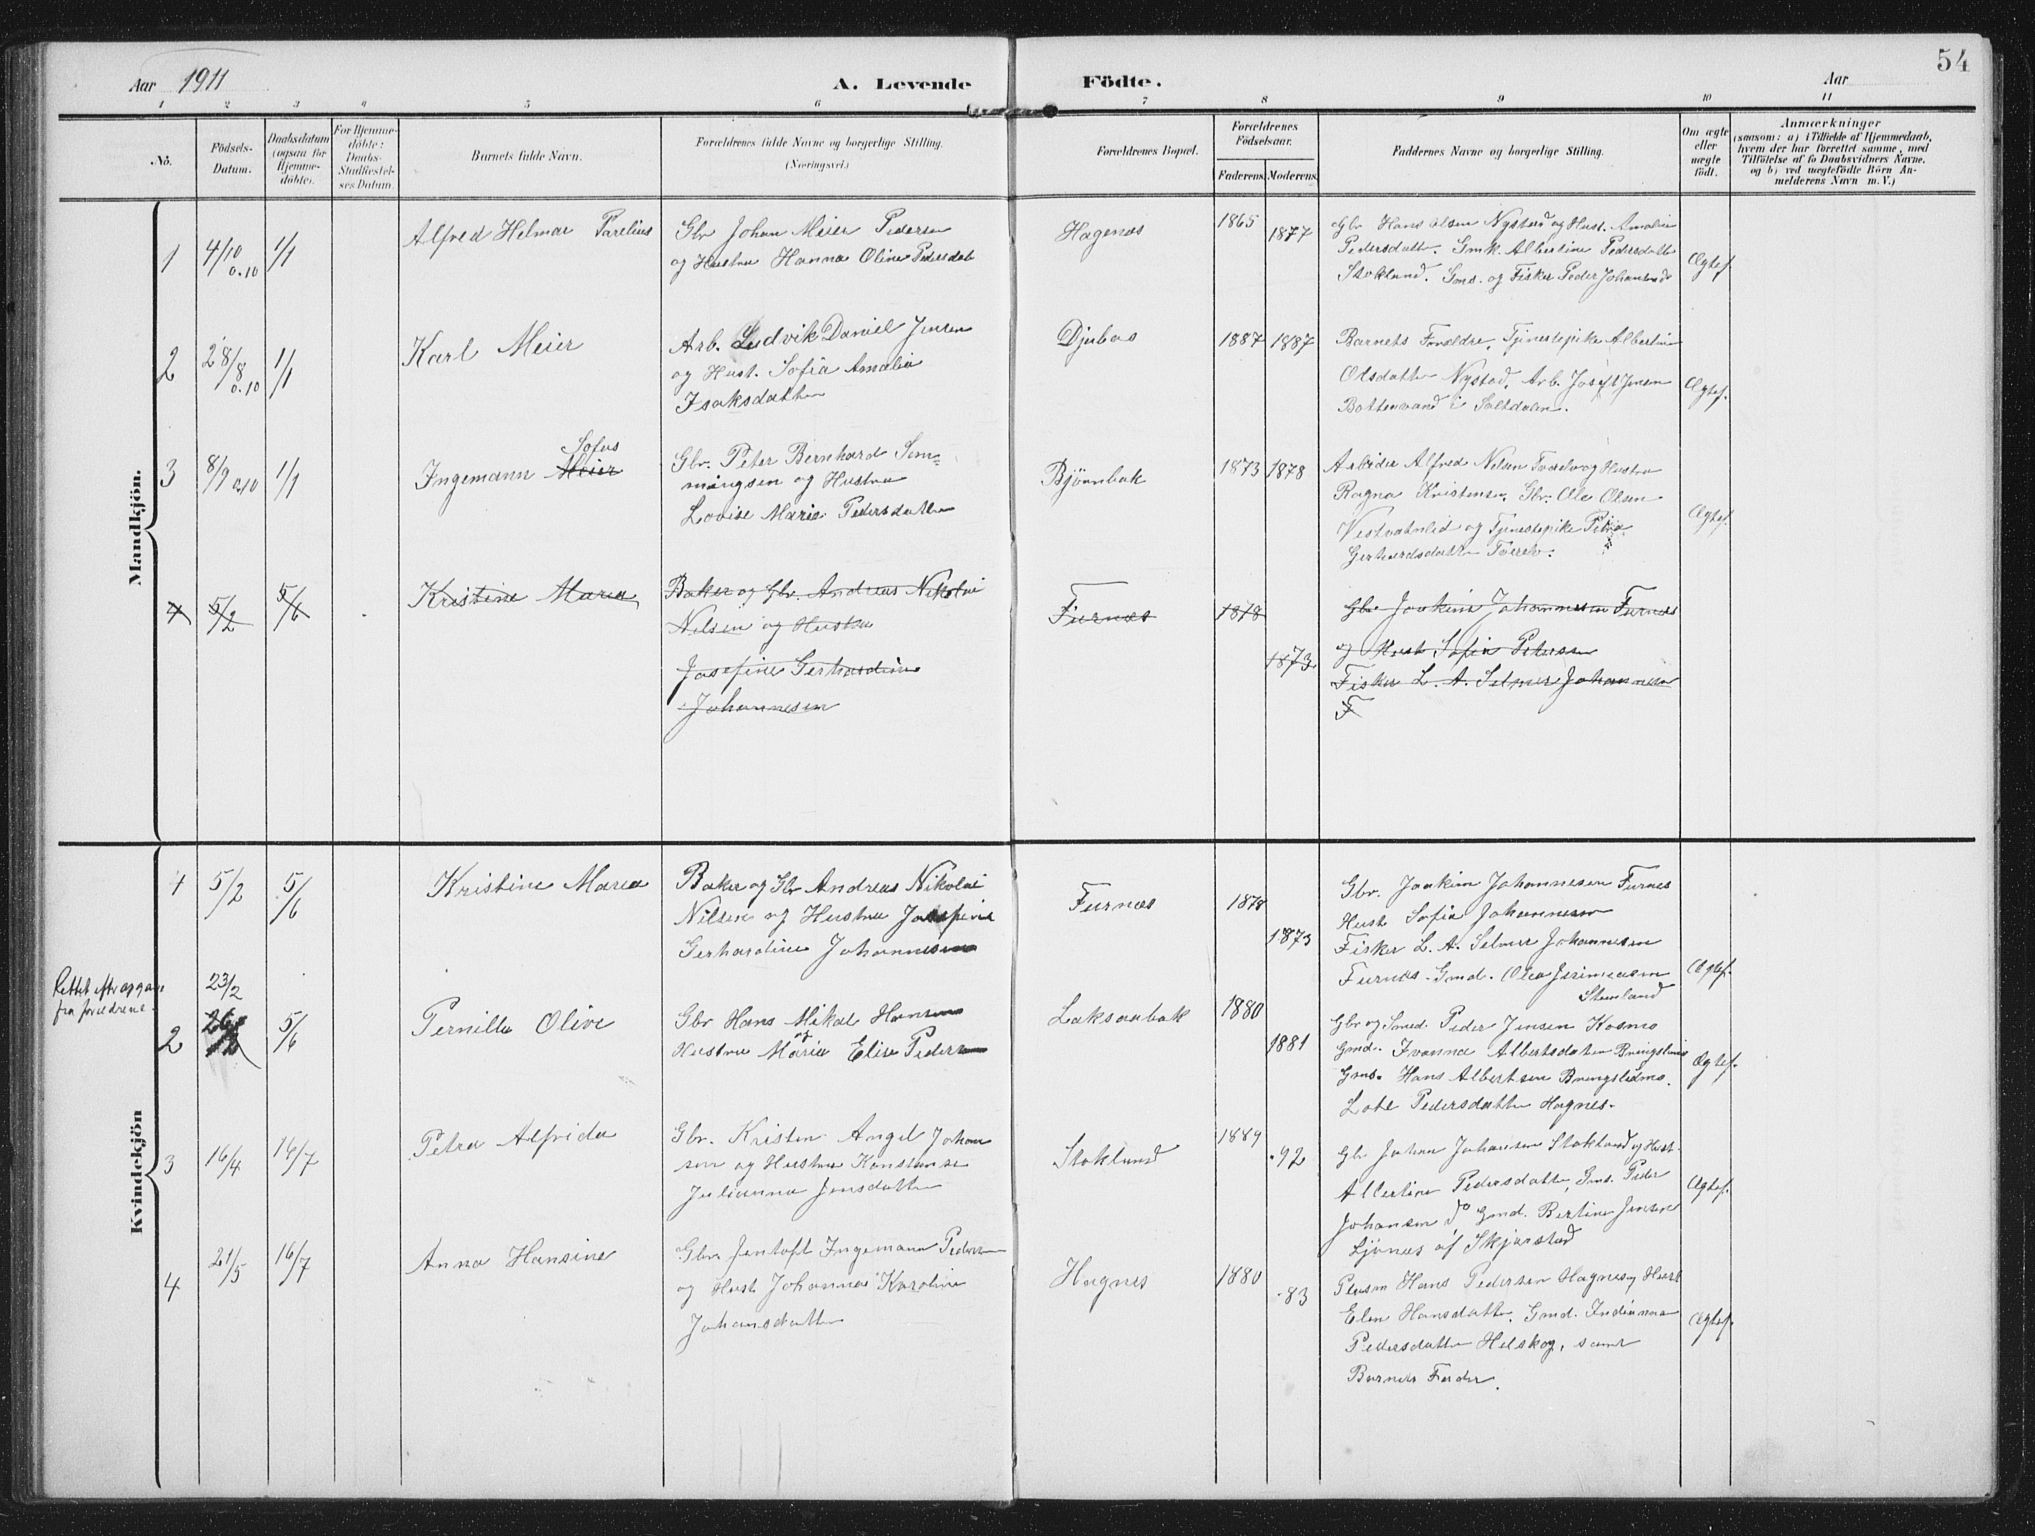 54
Aar 1911
A. Levende Födte.
Aar
1 2 3 4 5 6 7 8 9 10 11
No.
Födsels-Datum.
Daabsdatum (ogsaa for Hjemme-döbte).
For Hjemme-döbte: Daabs-Stadfæstel-ses Datum.
Barnets fulde Navn.
Forældrenes fulde Navne og borgerlige Stilling. (Næringsvei.)
Forældrenes Bopæl.
Forældrenes Födselsaar.
Faderens. Moderens.
Faddernes Navne og borgerlige Stilling.
Om ægte eller uægte födt.
Anmærkninger
(saasom: a) i Tilfælde af Hjemmedaab,
hvem der har forrettet samme, med
Tilföielse af to Daabsvidners Navne,
og b) ved uægtefödte Börn An-
melderens Navn m. V.)
Mandkjön.
1 4/10 0.10 1/1 Alfred Helmar Parelius
Gbr Johan Meier Pedersen
og Hustru Hanna Oline Pedersdat
Hagenæs 1865 1877
Gbr Hans Olsen Nystad og Hust. Amalie
Pedersdatter. Gmk. Albertine Pedersdatter
Stokland. Gms. og Fisker Peder Johansen
Ægtef.
2 28/8 0.10 1/1 Karl Meier
Arb. Ludvik Daniel Jensen
og Hust. Sofia Amalia
Isaksdatter
Djubos 1887 1887
Barnets Forældre, Tjenestepike Albertine
Olsdatter Nystad, Arb. Josef Jensen
Bottenvand i Saltdalen.
Ægtef.
3 8/9 0.10 1/1 Ingemann Meier Sofus
Gbr. Peter Bernhard Sem=
mingsen og Hustru
Lovise Marie Pedersdatter
Bjørnbak 1873 1878
Arbeider Alfred Nilsen og Hustru
Ragna Kristensen, Gbr. Ole Olsen
Vestvatnlid og Tjenestepike Petra
Gerhardsdatter
Ægtef.
4 5/2 5/6 Kristine Marea
Baker og Gbr. Andreas Nikolai
Nilsen og Hustru
Josefine Gerhardine
Johannesen
Furnæs 1878 1873.
Gbr Joakim Johannesen Furnes
og Hust Sofia Petersen
Fisker L. A. Selmer Johannesen
F
Kvindekjön
1 5/2 5/6 Kristine Marea
Baker og Gbr Andreas Nikolai
Nilsen og Hustru Josefine
Gerhardine Johannesen
Furnæs 1878 1873
Gbr. Joakim Johannesen Furnes
Hust Sofia Johannesen
Fisker L. A. Selmer Johannesen
Furnæs. Gmd. Olea Jerimeasen
Stemland
Ægtef.
Rettet efter opgave
fra forældrene.
2 23/2 5/6 Pernille Olive
Gbr Hans Mikal Hansen
og
Hustru Maria Elise Pedersen
Laksaabak 1880 1881
Gbr og Smed. Peder Jensen Kosmo
Gmd. Ivanna Albertsdatter Bringsli
Gms. Hans Albertsen Bringslidmo.
Lote Pedersdatter Hagnes.
Ægtef.
3 16/4 16/7 Petra Alfrida
Gbr. Kristen Angel Johan
sen og Hustru Konstanse
Julianna Jensdatter
Stokland 1889 .92
Gbr Johan Johansen Stokland og Hust.
Albertine Pedersdatter, Gms. Peder
Johansen do Gmd. Bertine Jensen
Ljønes af Skjerstad
Ægtef.
4 21/5 16/7 Anna Hansine
Gbr. Jentoft Ingemann Pedersen
og Hust Johanna Karoline
Johansdatter
Hagnes 1880 .83
Hans Pedersen Hagnes og Hust
Elen Hansdatter. Gmd. Indianna
Pedersdatter Helskog, samt
Barnets Fader.
Ægtef.